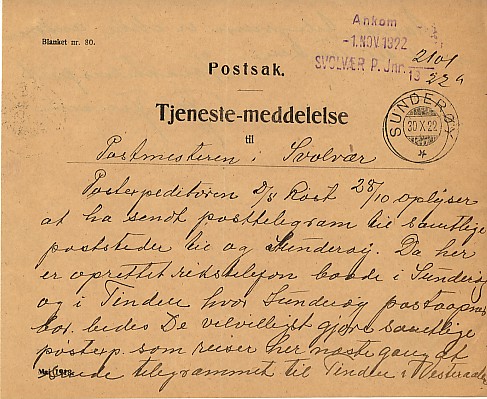 Blanket nr. 30.
Ankom
-1.NOV.1922
SVOLVÆR P. Jnr.
2101
22a
Postsak.
Tjeneste-meddelelse
til
SUNDERØY
30 X 22
Postmesteren i Svolvær
Postexpeditøren D/S Röst 28/10 oplyser
at ha sendt posttelegram til samtlige
poststeder til og Sunderøy. Da her
er oprettet rikstelefon baade i Sunderøy
og i Tinden hvor Sunderøy postaapner
bor. bedes De velvilligst gjøre samtlige
postexp. som reiser her næste gang at
sende telegrammet til Tinden i Westeraalen
Mai